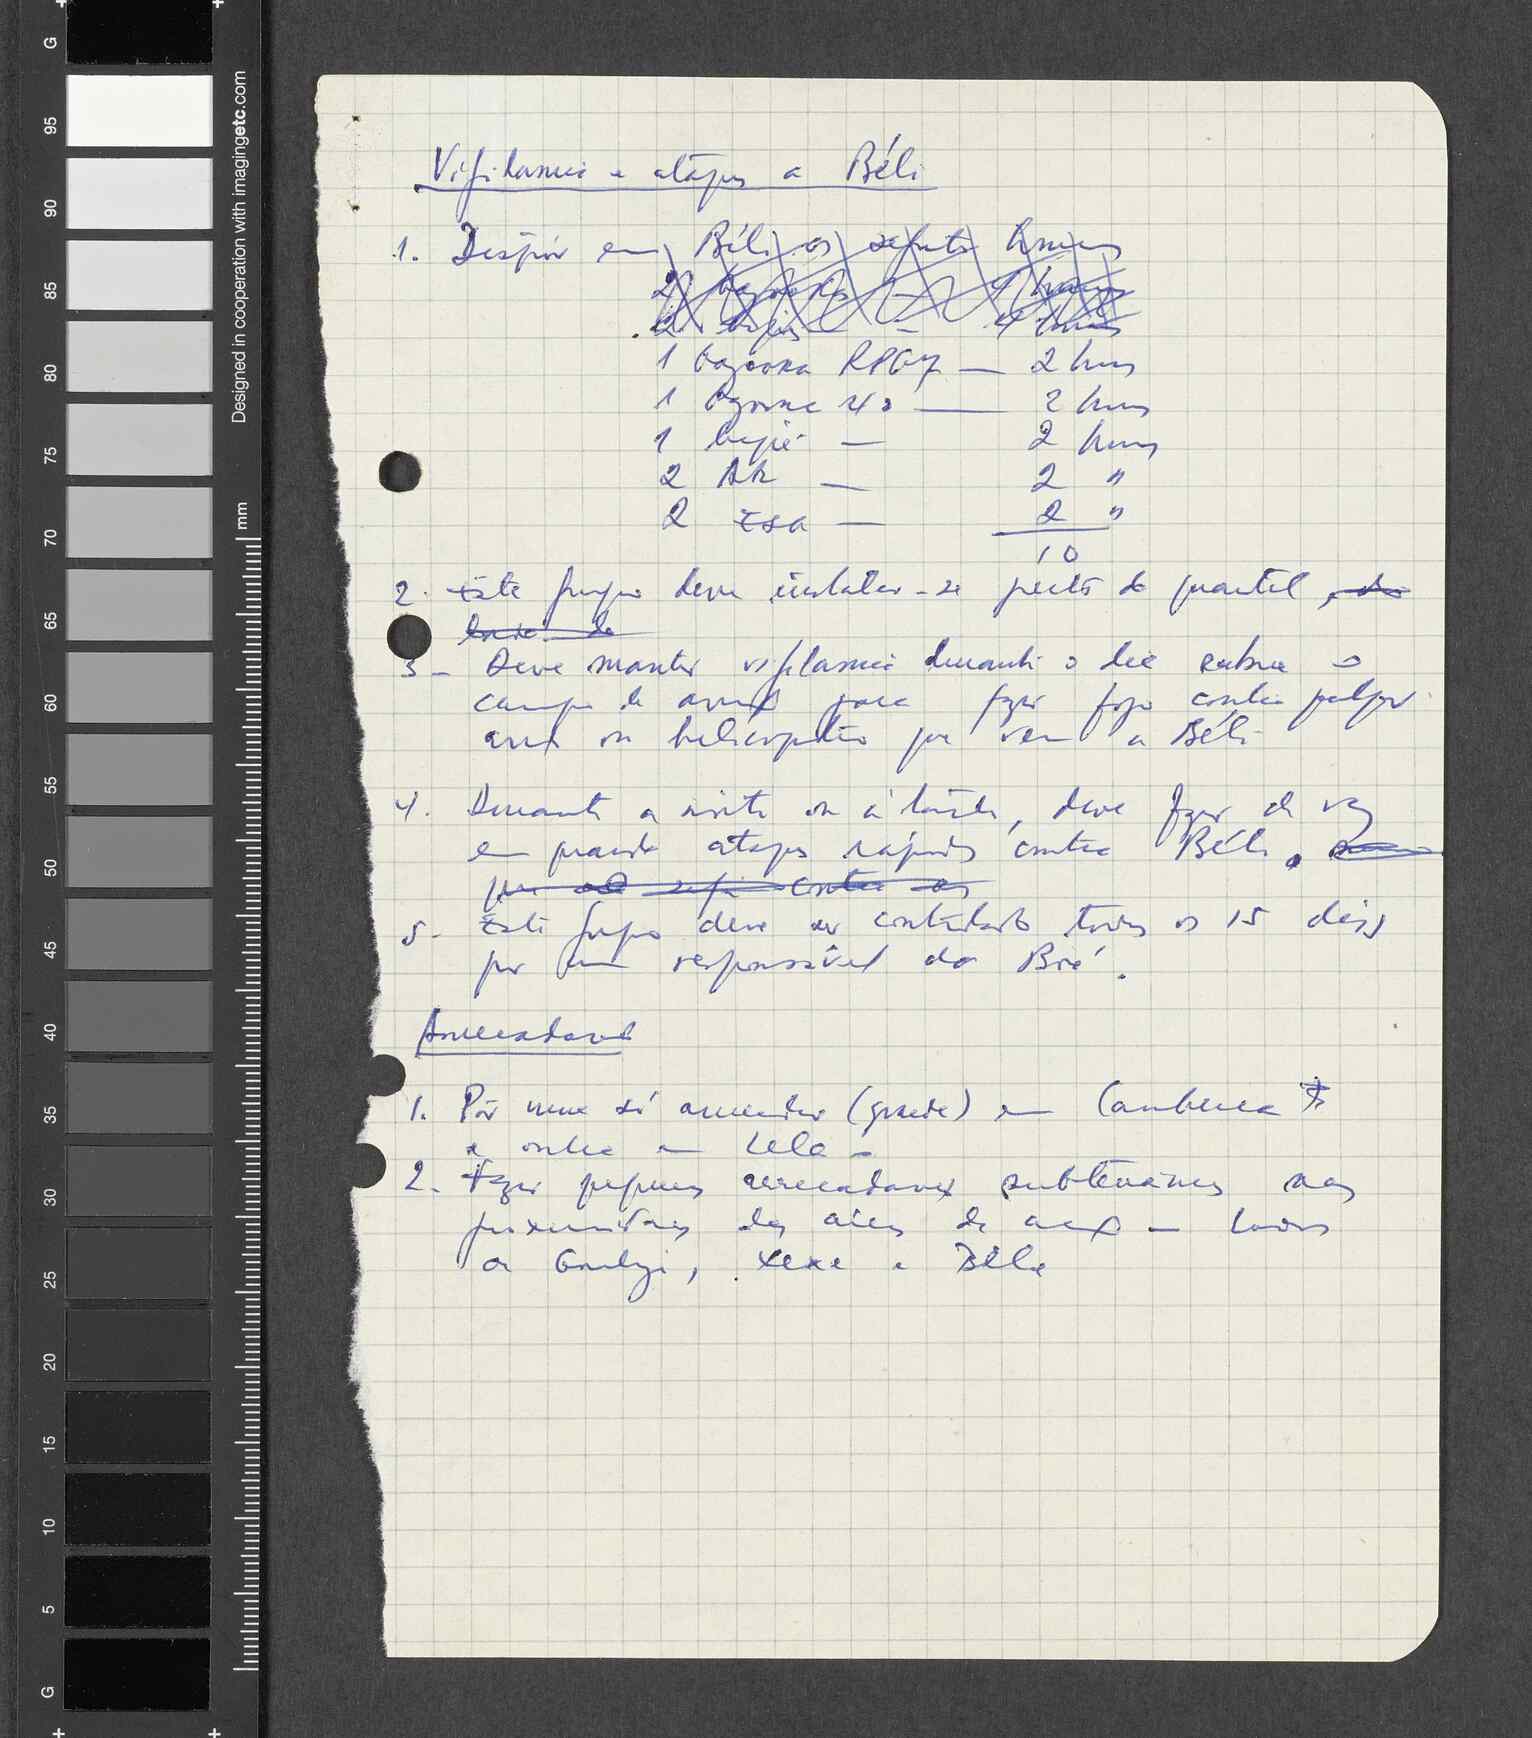 Vigilancia e ataques a Béli
1. Dispôr em Béli os seguintes homens
2 bazookas — 4 homens
2 — 4
1 bazooka RPG7 — 2 hms
1 bazooka — 2 hms
1 — 2 hms
2 AK — 2 "
2 — 2 "
10
2. Este grupo deve instalar-se perto do quartel,
3 - Deve manter vigilancia durante o dia sobre o
campo de para fazer fogo contra qualquer
avião ou helicoptero que vem a Béli
4. Durante a noite ou à tarde, deve fazer de vez
em quando ataques rápidos contra Béli.
contra os
5. Este grupo deve ser controlado todos os 15 dias
por um responsável do Boé.
Arrecadações
1. Pôr uma só arrecadação (grande) em
e outra em Lela
2. Fazer pequenas arrecadações subterrâneas nas
proximidades das áreas de acção —
e
Designed in cooperation with imagingetc.com
mm
G
95
90
85
80
75
70
65
60
55
50
45
40
35
30
25
20
15
10
5
G